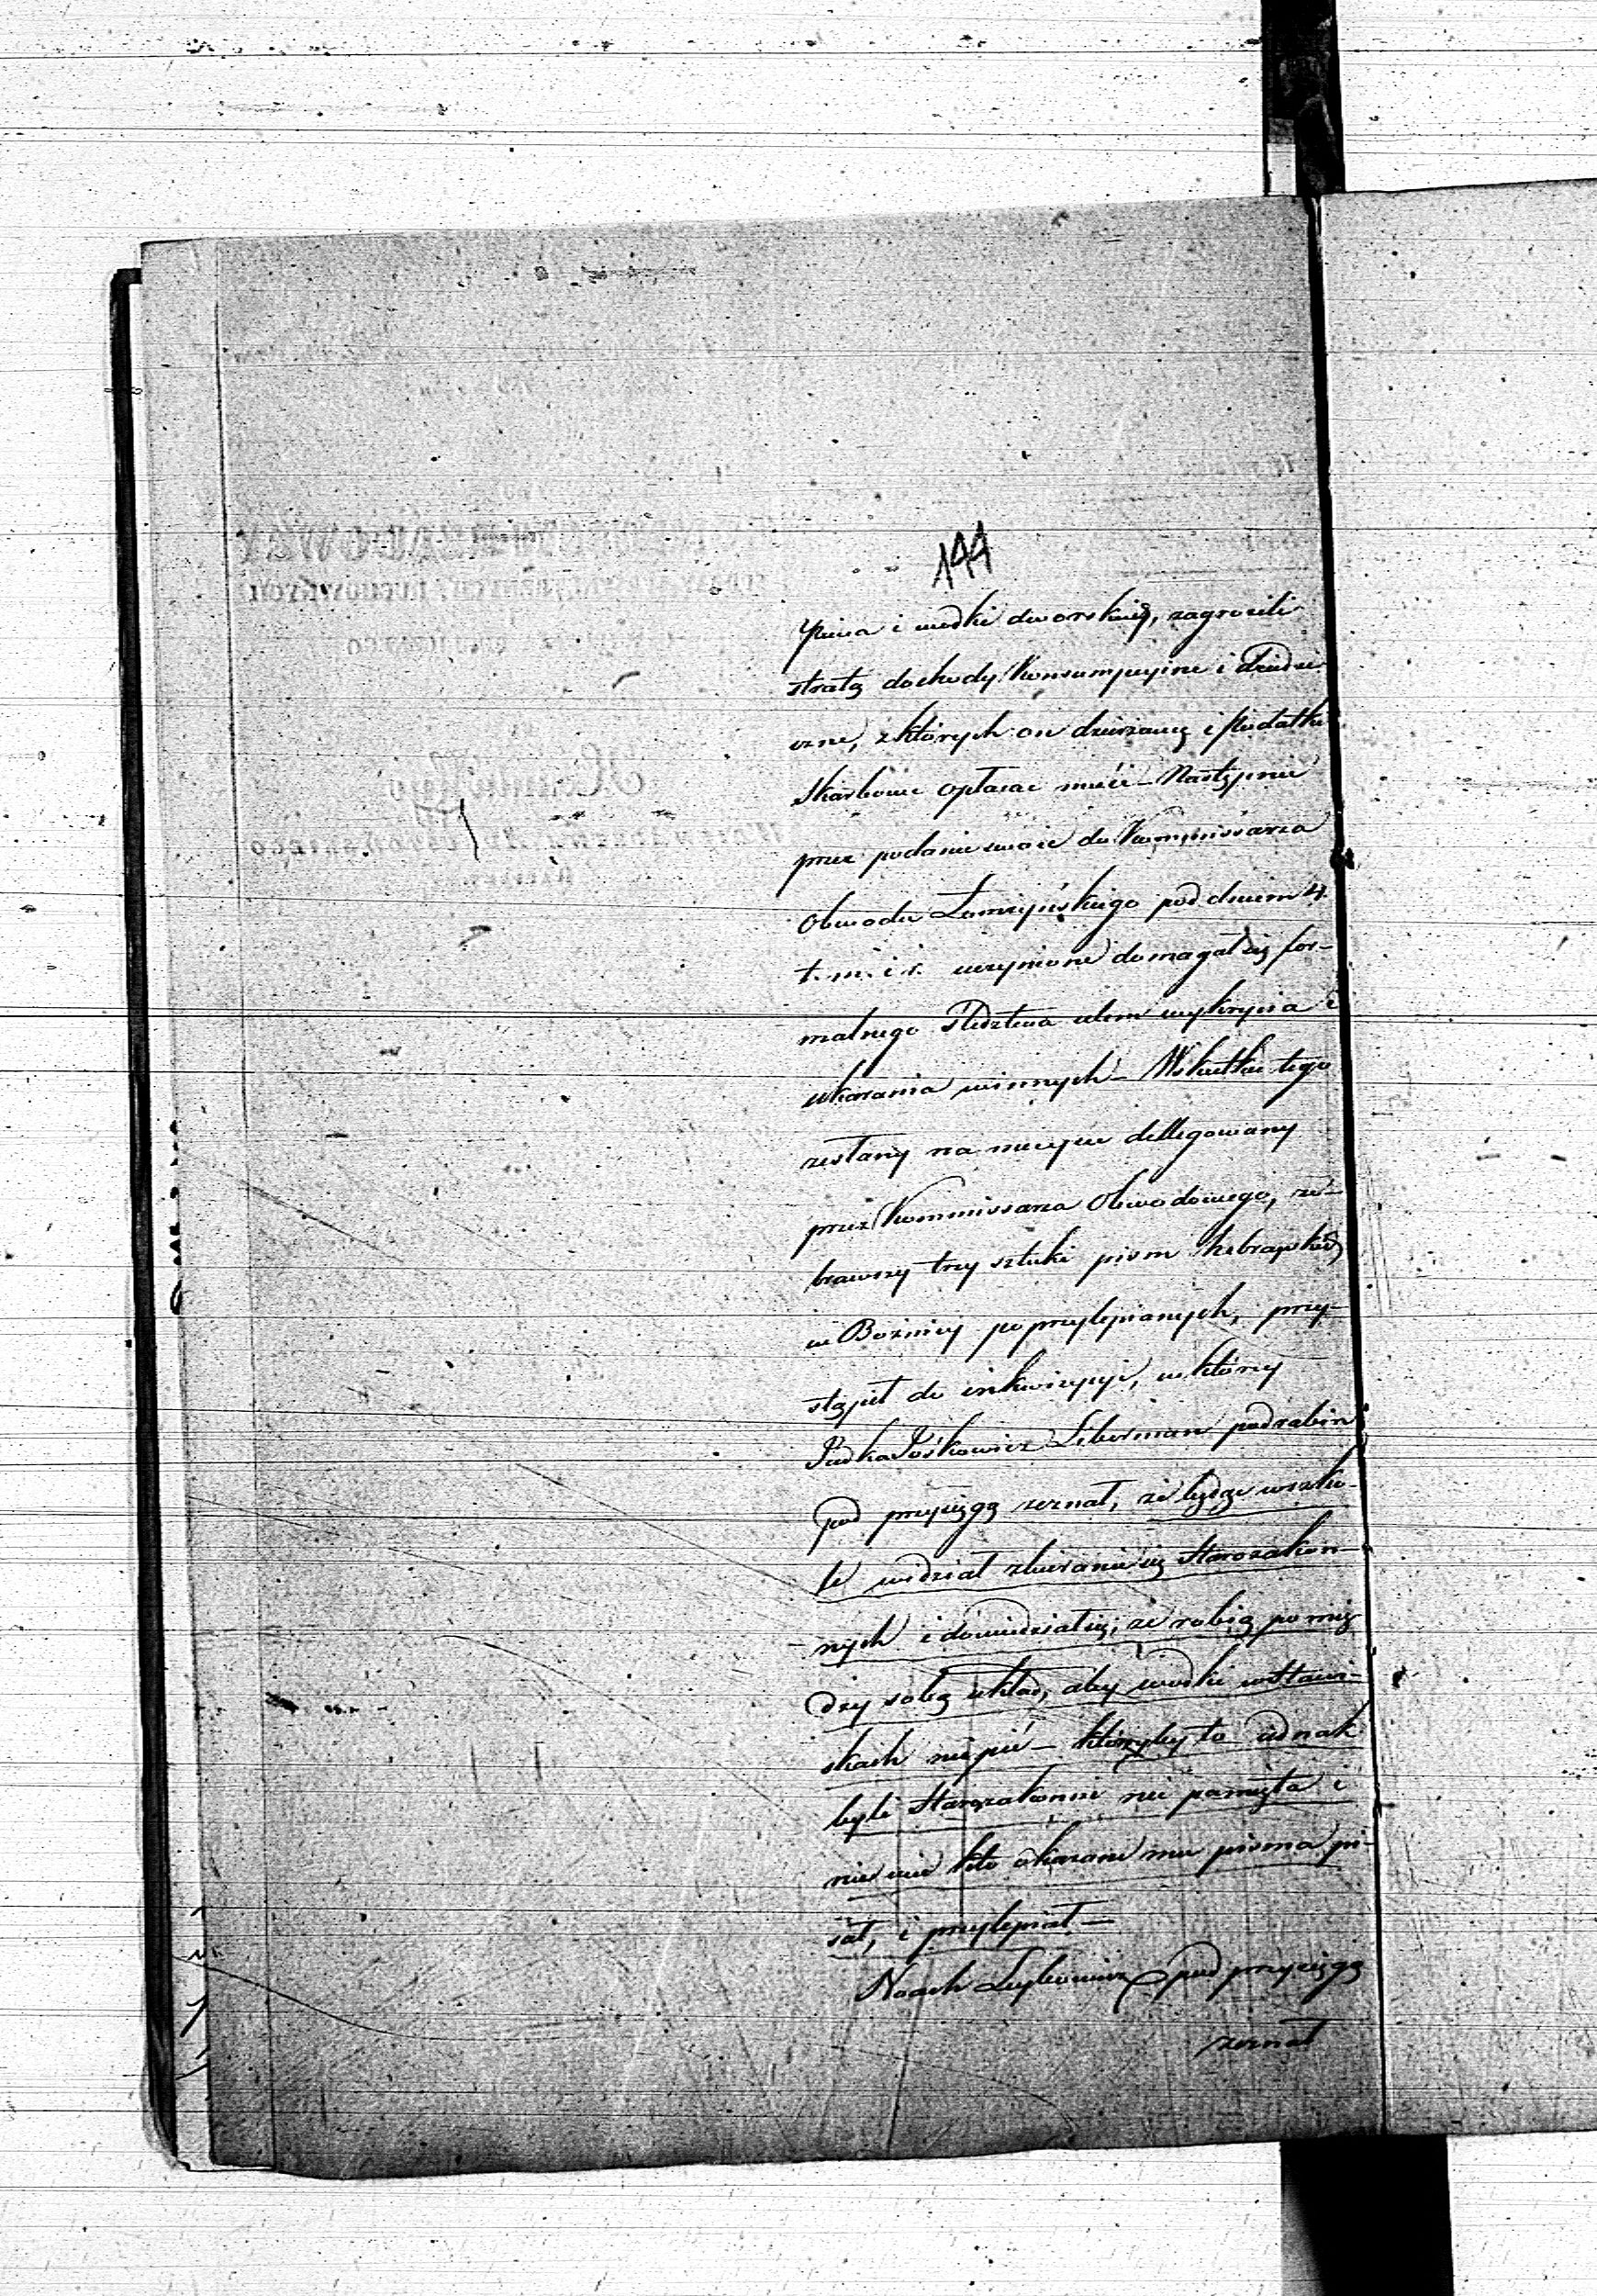 144
piwa i wodki dworskiej, zagrozili
stratą dochody Konsumpcyjne i Dziedzi
czne, z których on dzierżawę i podatki
Skarbowe opłacać
przez podanie swoie do Kommissarza
Obwodu Łomżyńskiego pod dniem 4.
t. m. i r. uczynione domagał się for-
malnego Śledztwa celem wykrycia i
ukarania winnych – Wskutku tego
zesłany na mieysce dellegowany
przez Kommissarza Obwodowego, ze-
brawszy trzy sztuki pism hebrayskich
w Bożnicy poprzylepianych, przy-
stąpił do inkwizycyi, w którey
Joskowicz Liberman podrabin
pod przysięgą zeznał, że będąc w szko-
le widział zbieranie się Starozakon-
nych i dowiedział się, że robią pomię
dzy sobą układ, aby wodki w Stawi-
skach nie pić – którzyby to iednak
byli Starozakonni nie pamięta i
nie wie kto okazane mu pisma pi-
sał, i przylepiał –
Noach Leybowicz pod przysięgą
zeznał